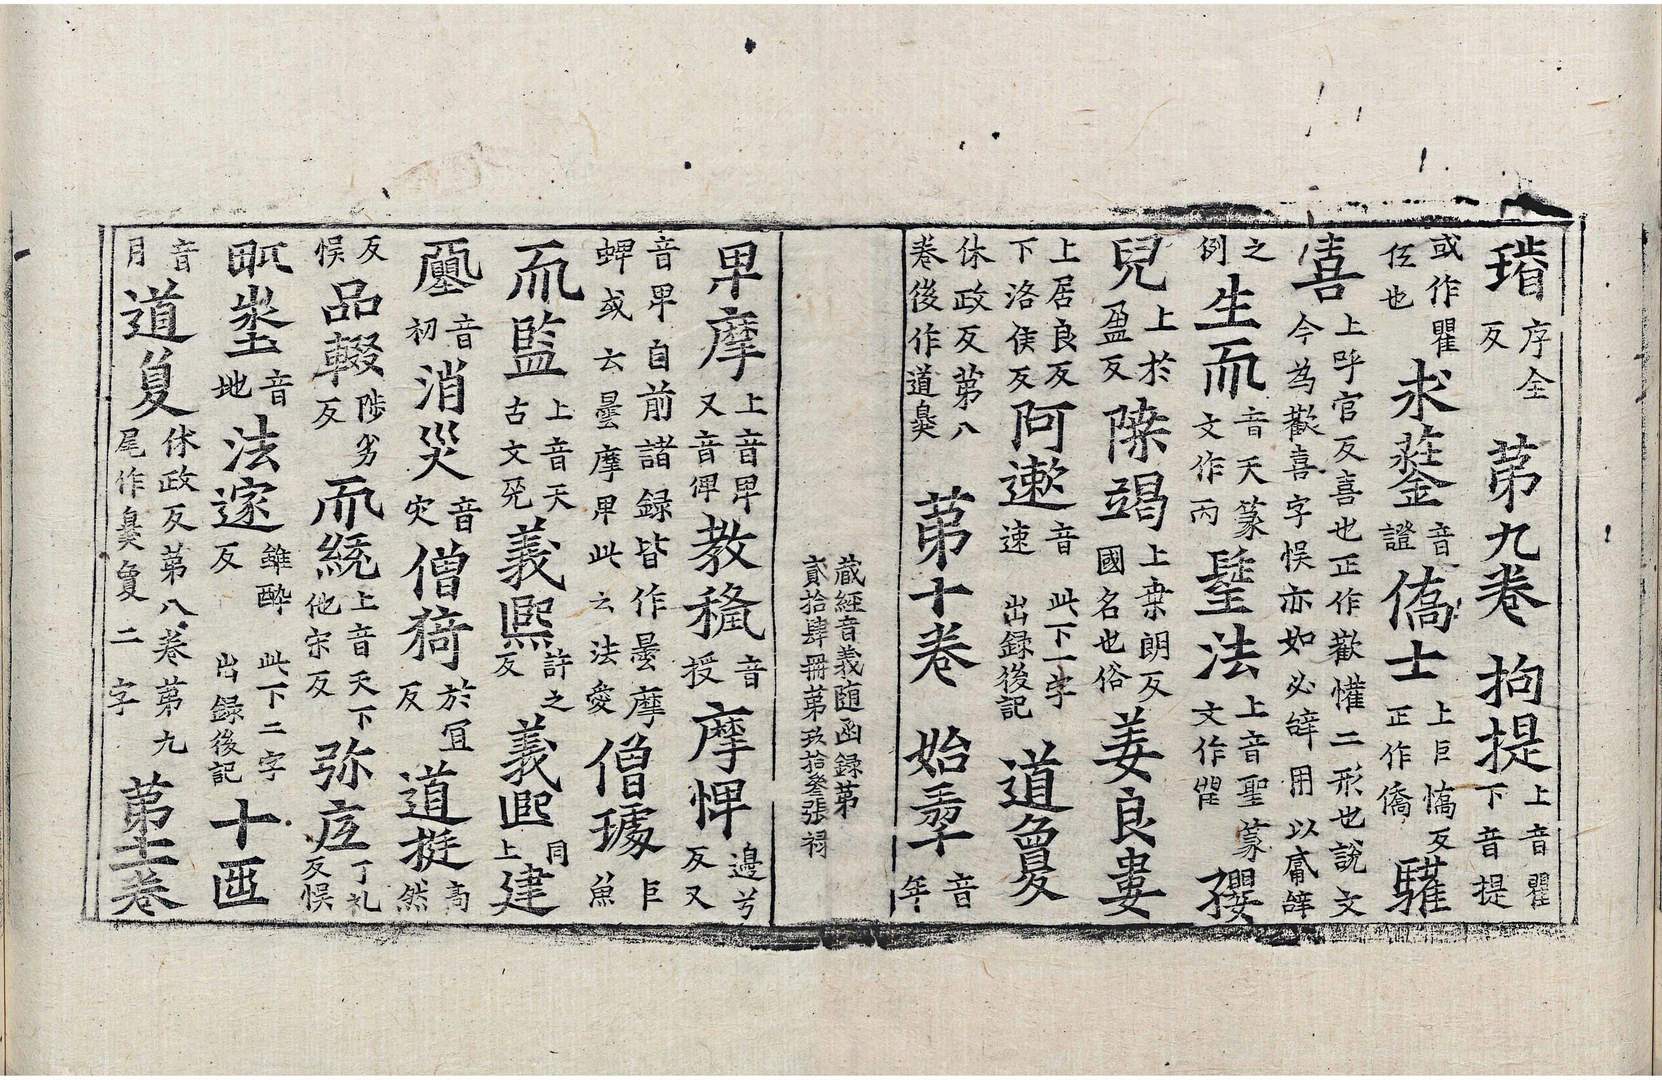 瑎序全反 第九卷 拘提上音瞿下音提
或作瞿伍也 求音證 僑士上巨憍反正作僑 驩
憙上呼官反喜也正作歡懽二形也說文今為歡喜字悮亦如必辞用以辞
之例 生而音天篆文作丙 法上音聖篆文作 孾
兒上於盈反 竭上桒朗反國名也俗 姜良婁
上居良反下洛侯反 阿漱音速 此下一字出録後記 道敻
休政反第八卷後作道奠 第十卷 始音年
蔵經音義随函録第貳拾肆冊第玖拾叁張 祠
卑摩上音卑又音俾 教音授 摩㥎邊兮反又
音卑自前諸録皆作曇摩蜱或云曇摩卑此云法愛 僧璩巨魚
而監上音天古文 義熙許之反 義熙同上 建
音初 消災音灾 僧猗於宜反 道挻羶然
反悮 品輟陟劣反 而統上音天下他宋反 弥丁礼反悮
音地 法邃雖醉反 此下二字出録後記 十
音月 道敻休政反第八卷第九尾作奠敻二字 第十一卷